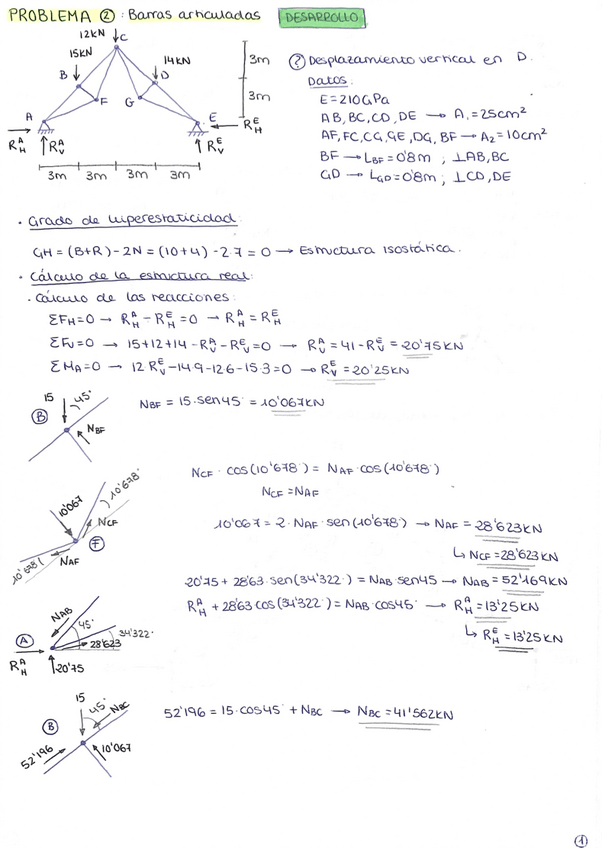 PROBLEMA ②: Barras articuladas DESARROLLO
12KN
C
15KN
14KN
B
D
F
G
A
E
3m
3m
R_H^A
R_V^A
R_V^E
R_H^E
3m 3m 3m 3m
? Desplazamiento vertical en D.
Datos:
E=210GPa
AB, BC, CD, DE → A₁=25cm²
AF, FC, CG, GE, DG, BF → A₂=10cm²
BF → L_BF=0'8m ; ⊥AB, BC
GD → L_GD=0'8m ; ⊥CD, DE
· Grado de hiperestaticidad:
GH = (B+R)-2N = (10+4)-2·7=0 → Estructura Isostática.
· Cálculo de la estructura real:
· Cálculo de las reacciones:
ΣF_H=0 → R_H^A - R_H^E =0 → R_H^A = R_H^E
ΣF_V=0 → 15+12+14-R_V^A-R_V^E=0 → R_V^A=41-R_V^E = 20'75KN
ΣM_A=0 → 12R_V^E-14·9-12·6-15·3=0 → R_V^E = 20'25KN
15
45°
B
N_BF
N_BF = 15·sen45° = 10'067KN
10'067
10'678°
N_CF
F
10'678°
N_AF
N_CF · cos(10'678°) = N_AF · cos(10'678°)
N_CF = N_AF
10'067 = 2·N_AF·sen(10'678°) → N_AF = 28'623KN
↳ N_CF = 28'623KN
20'75 + 28'63·sen(34'322°) = N_AB·sen45 → N_AB = 52'169KN
R_H^A + 28'63 cos(34'322°) = N_AB·cos45° → R_H^A = 13'25KN
↳ R_H^E = 13'25KN
N_AB
45°
34'322°
A
28'623
R_H^A
20'75
15
45°
N_BC
B
52'196
10'067
52'196 = 15·cos45° + N_BC → N_BC = 41'562KN
1